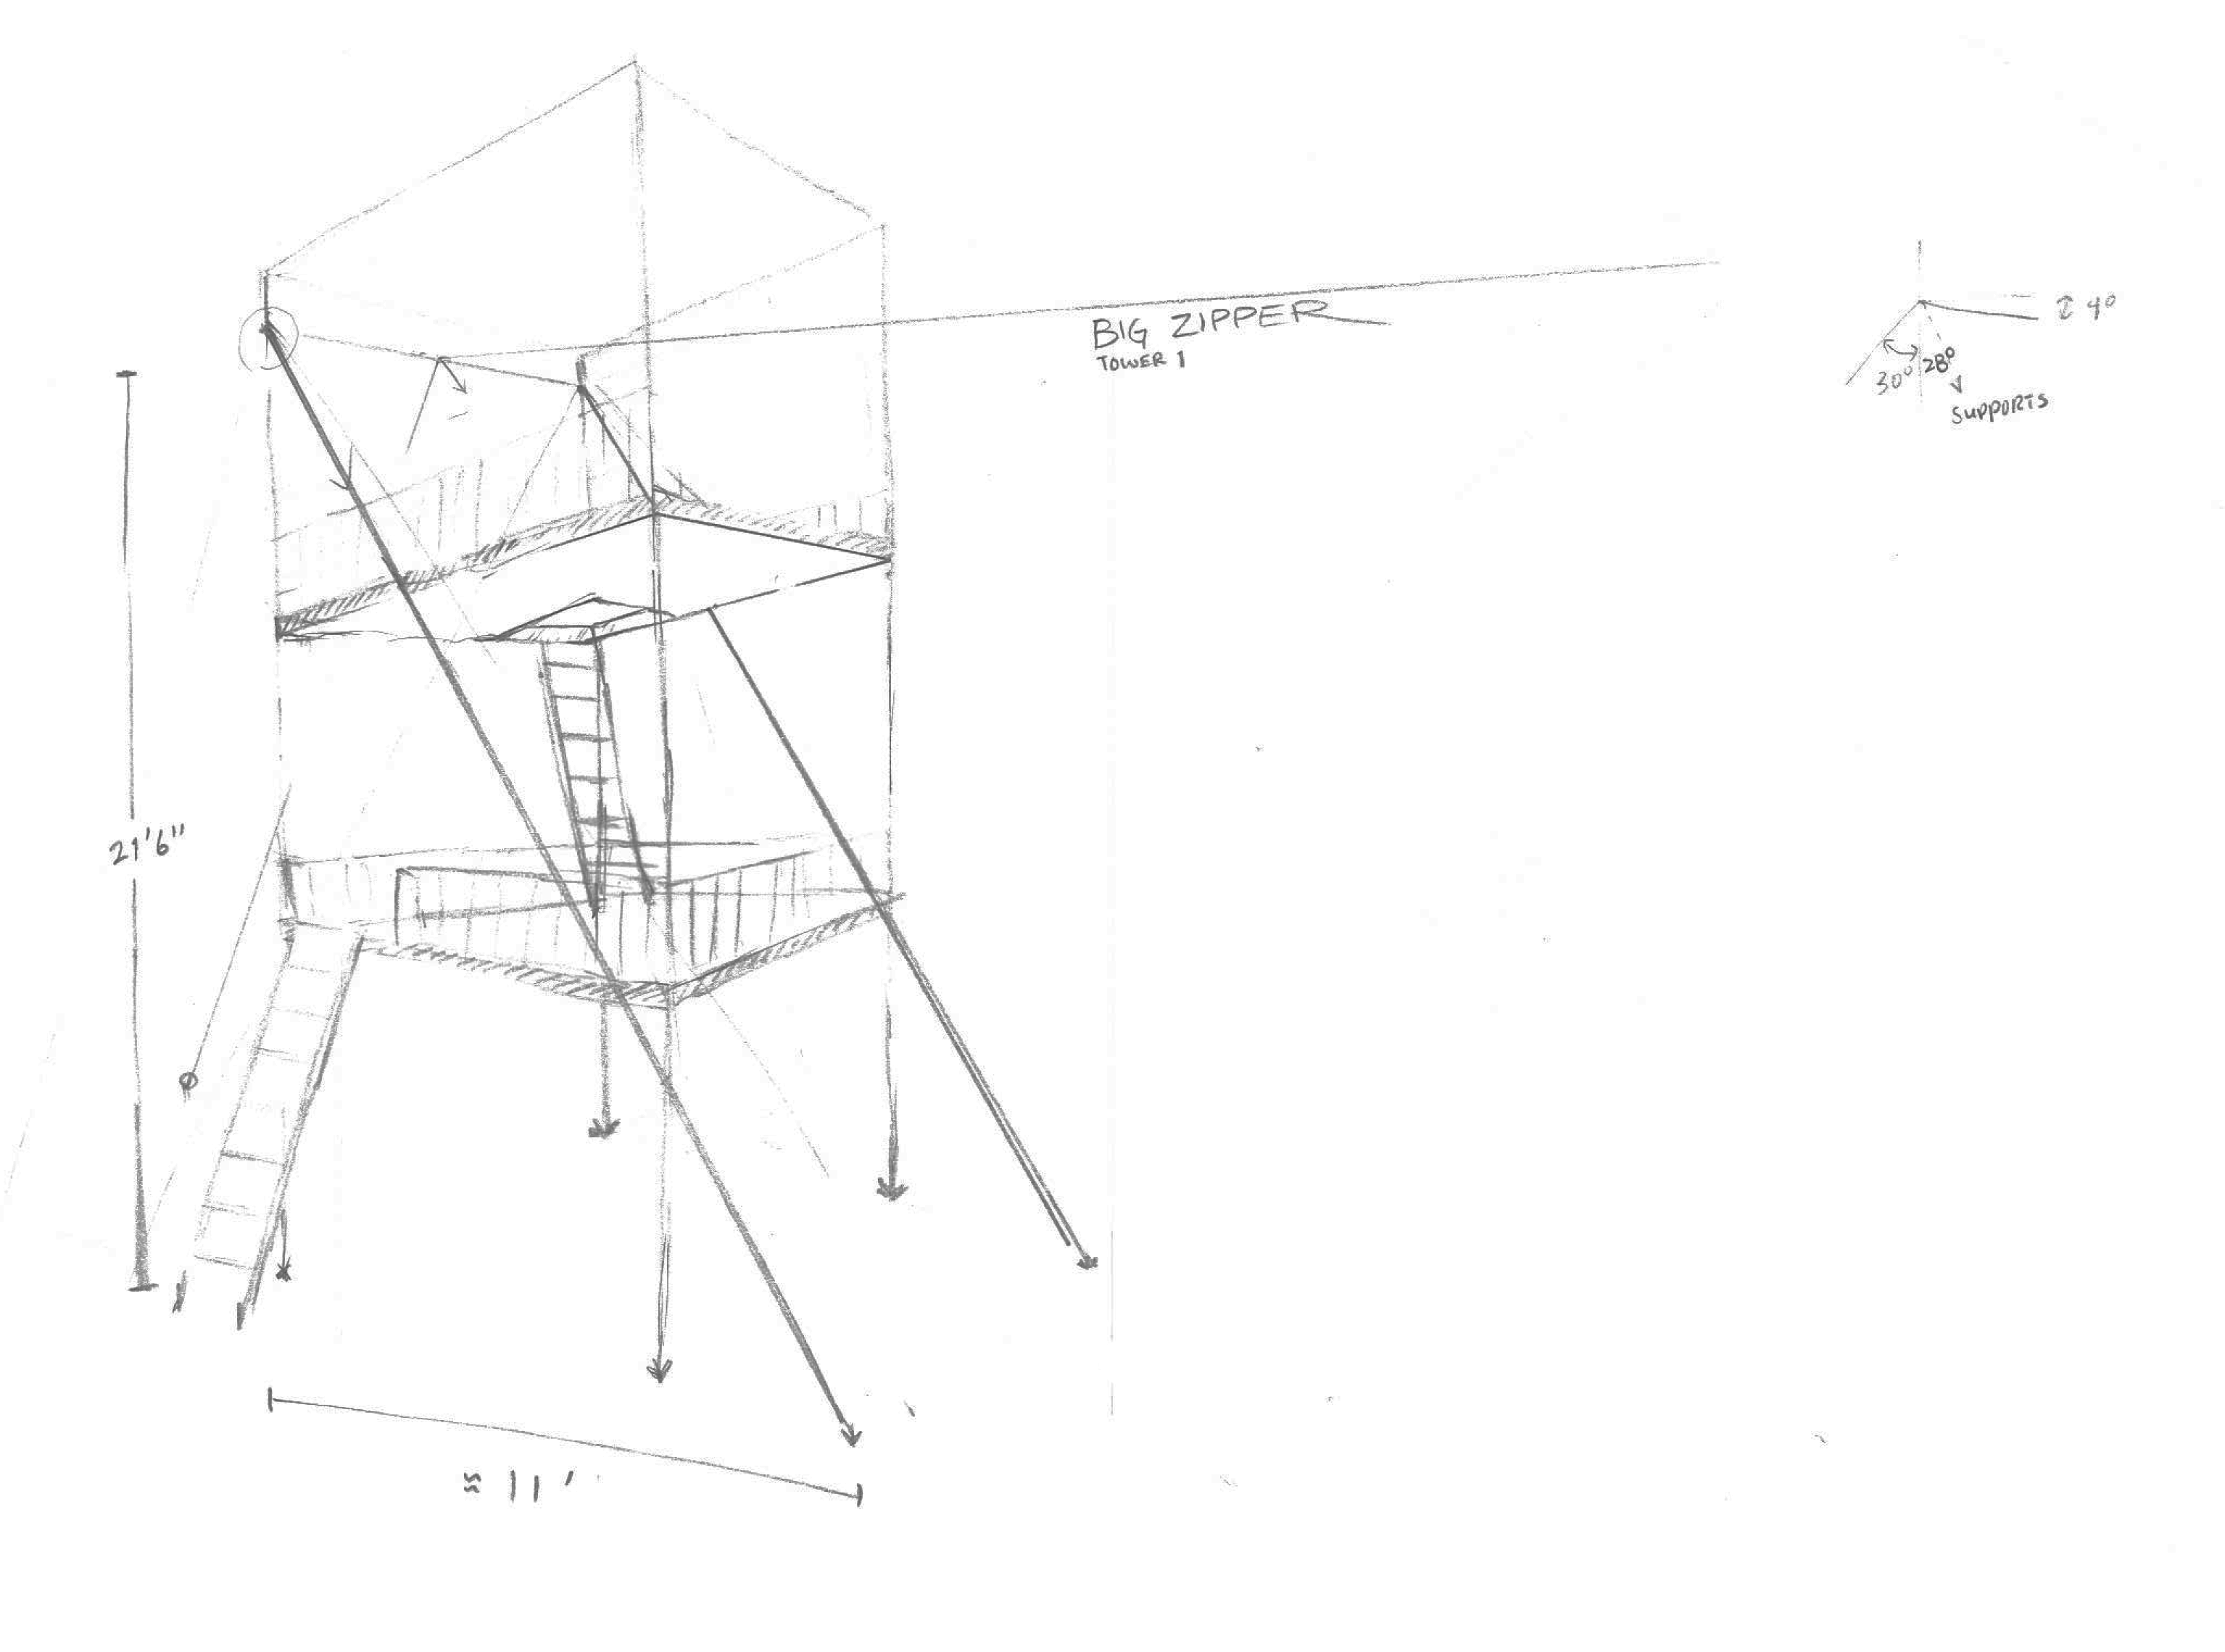 BIG ZIPPER
TOWER 1
4°
30° 28°
SUPPORTS
21'6"
≈ 11'